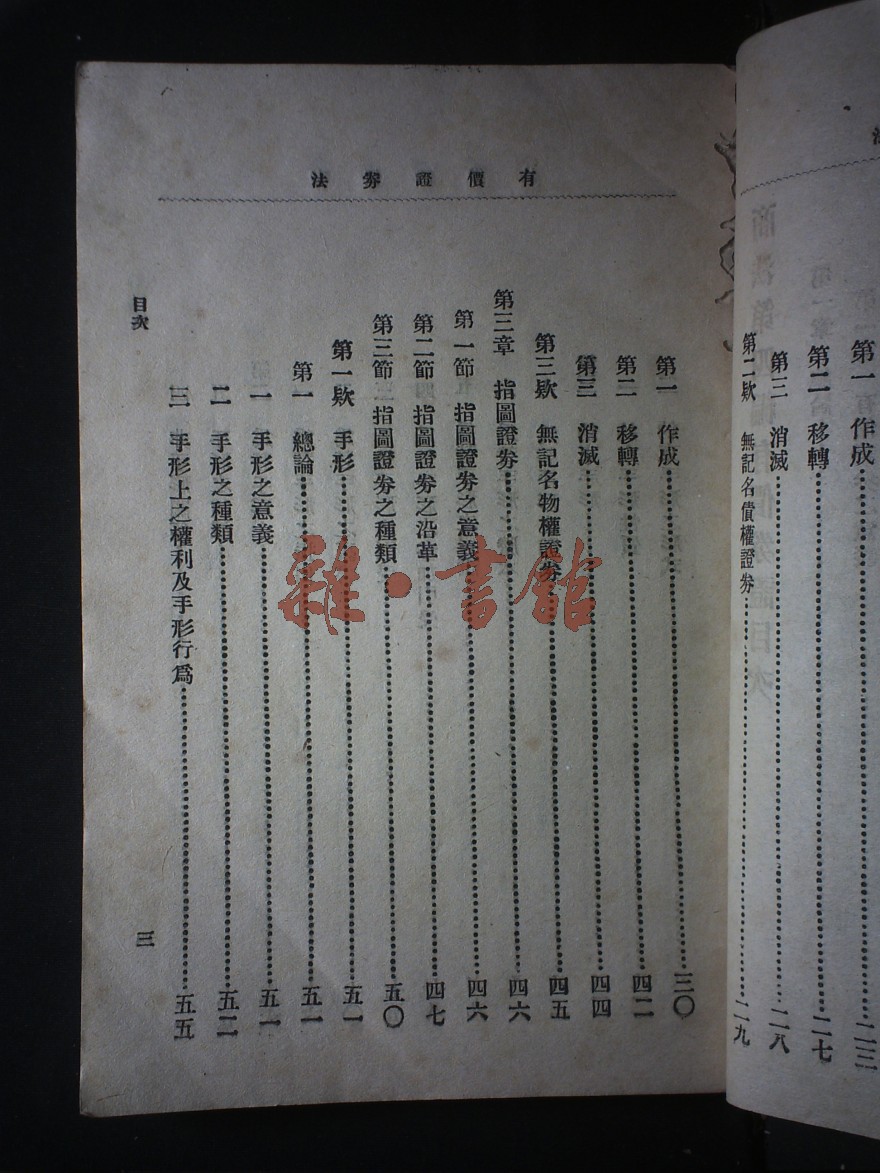 第一 作成………二三
第二 移轉………二七
第三 消滅………二八
第二欵 無記名債權證券………二九
有價證券法
第一 作成………三〇
第二 移轉………四二
第三 消滅………四四
第三欵 無記名物權證券………四五
第三章 指圖證券………四六
第一節 指圖證券之意義………四六
第二節 指圖證券之沿革………四七
第三節 指圖證券之種類………五〇
第一欵 手形………五一
第一 總論………五一
一 手形之意義………五一
二 手形之種類………五二
三 手形上之權利及手形行爲………五五
目次
三
雜·書館